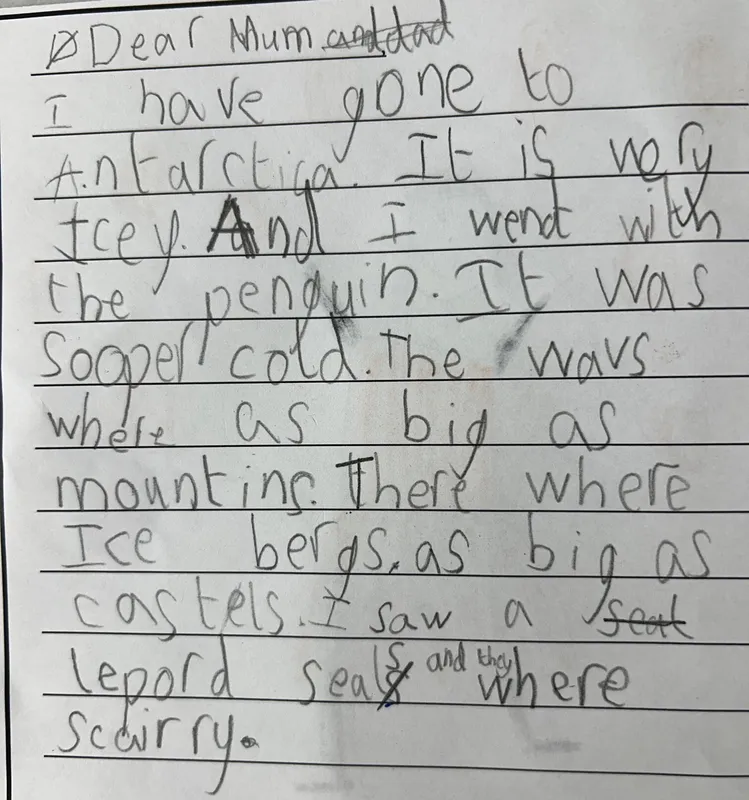 Dear Mum and dad
I have gone to
Antarctica. It is very
Icey. And I went with
the penguin. It was
Sooper cold. The wavs
where as big as
mountins. There where
Ice bergs. as big as
castels. I saw a seal
lepord seals and they where
scairry.